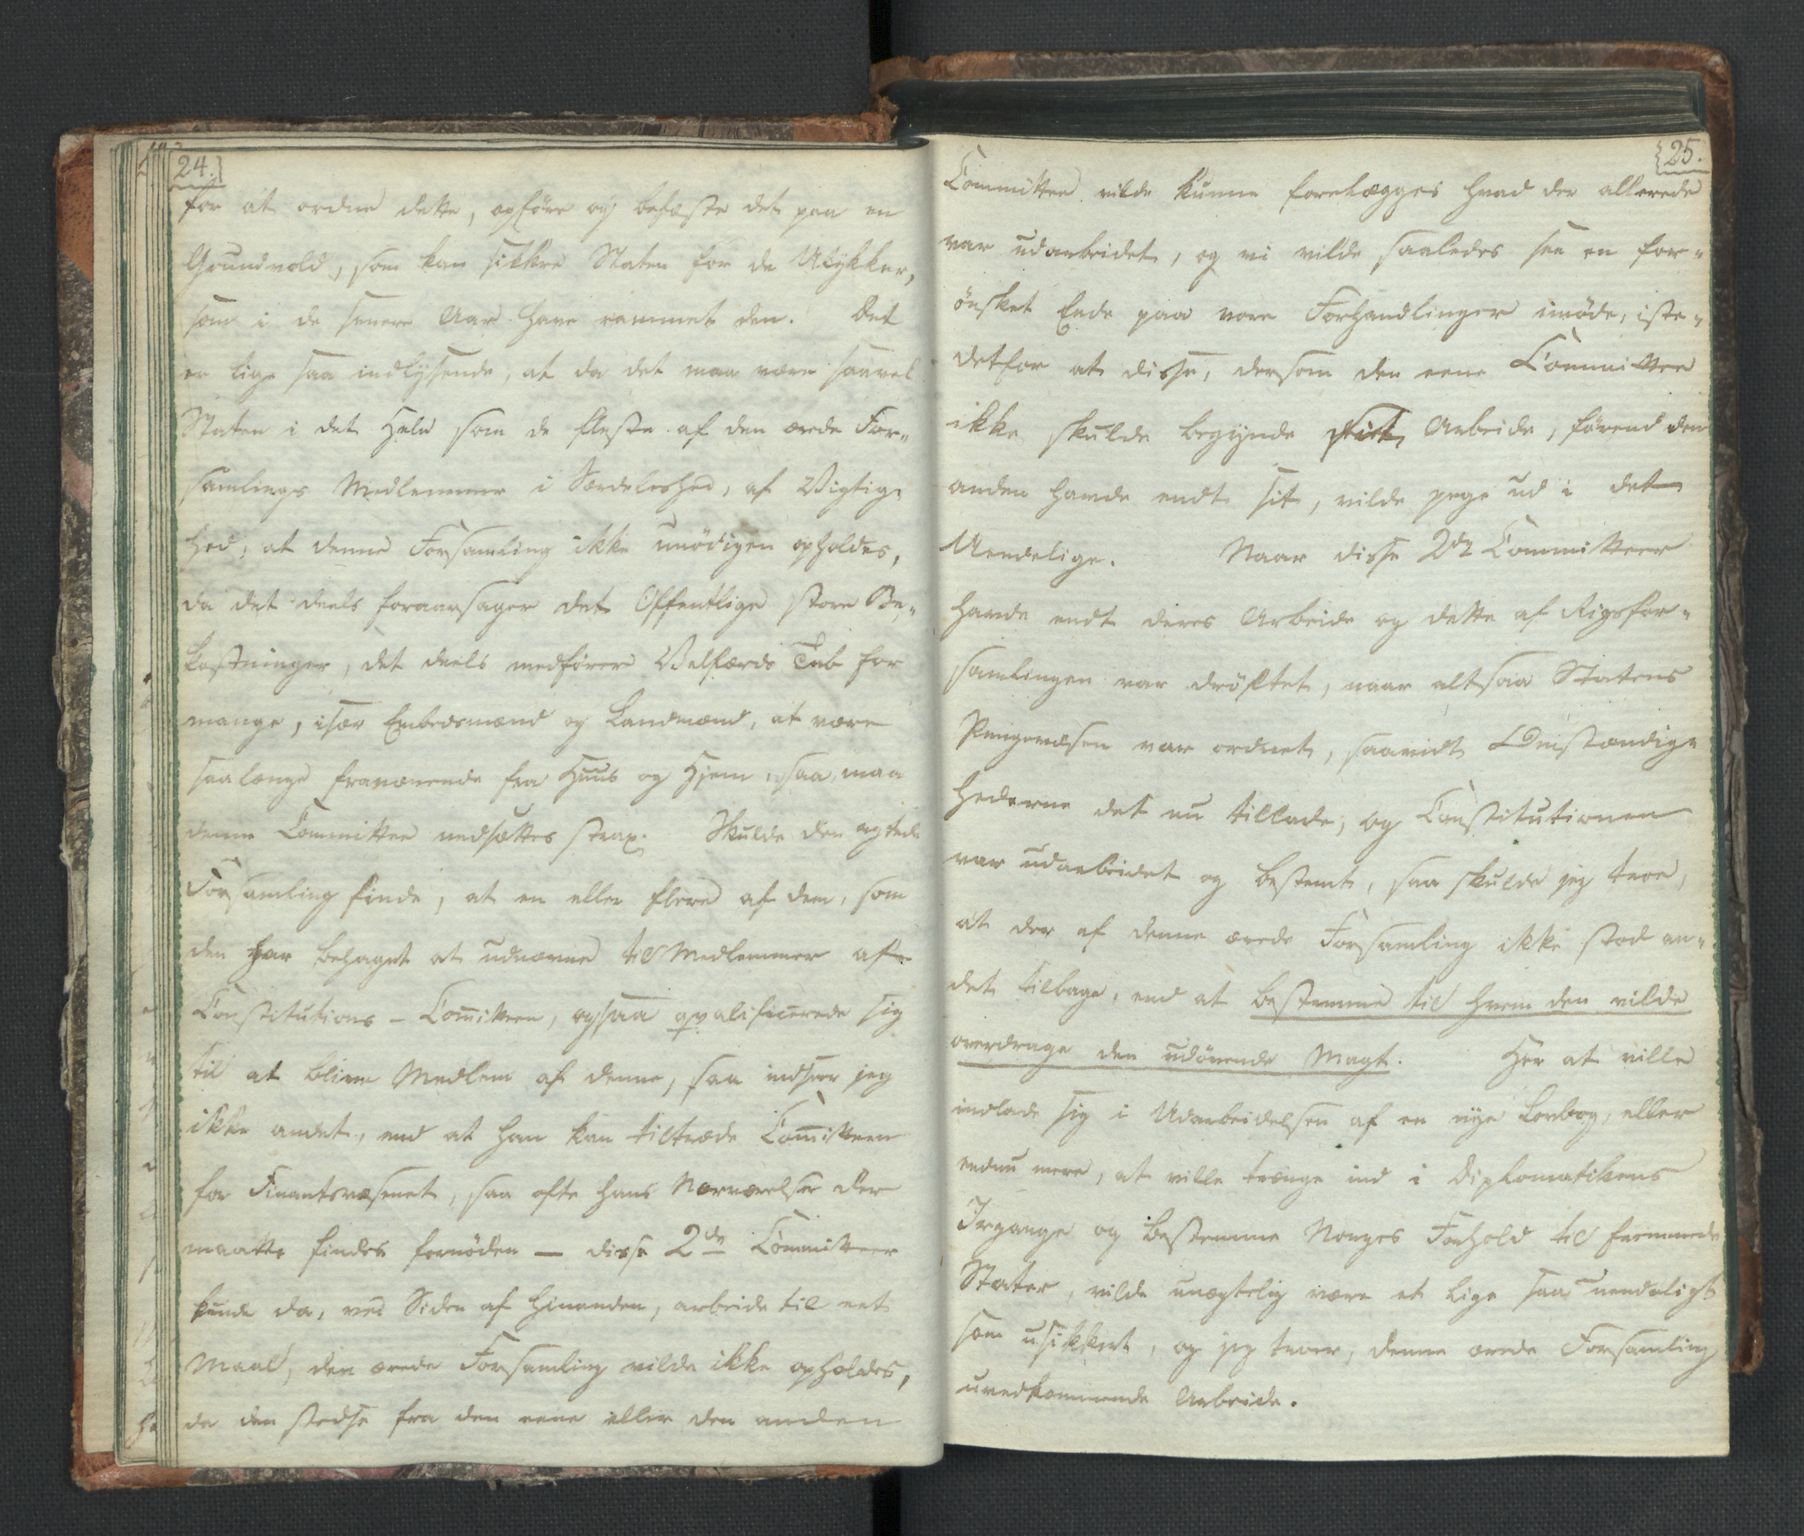 24.
for at ordne dette, opføre og befæste det paa en
Grundvold, som kan sikkre Staten for de Ulykker,
som i de senere Aar have rammet den. Det
er lige saa indlysende, at da det maa være saavel
Staten i det Hele som de fleste af den ærede For-
samlings Medlemmer i Særdeleshed, af Vigtig-
hed, at denne Forsamling ikke unödigen opholdes,
da det deels foraarsager det Offentlige store Be-
kostninger, det deels medfører Velfærds Tab for
mange, især Embedsmænd og Landmænd, at være
saalænge fraværende fra Huus og Hjem, saa maa
denne Committee nedsættes strax. Skulde den agtede
Forsamling finde, at en eller flere af dem, som
den har behaget at udnævne til Medlemmer af
Constitutions-Com̄itteen, ogsaa qvalificerede sig
til at blive Medlem af denne, saa indseer jeg
ikke andet, end at han kan tiltræde Com̄itteen
for Finantsvæsenet, saa ofte hans Nærværelse der
maatte findes fornöden — disse 2de Committeer
kunde da, ved Siden af hinanden, arbeide til eet
Maal, den ærede Forsamling vilde ikke opholdes,
da den stedse fra den eene eller den anden
25.
Committee vilde kunne forelægges hvad der allerede
var udarbeidet, og vi vilde saaledes see en for-
önsket Ende paa vore Forhandlinger imöde, iste-
detfor at disse, dersom den eene Committee
ikke skulde begynde sit Arbeide, förend den
anden havde endt sit, vilde pege ud i det
Uendelige. Naar disse 2de Committeer
havde endt deres Arbeide og dette af Rigsfor-
samlingen var dröftet, naar altsaa Statens
Pengevæsen var ordnet, saavidt Omstændig-
hederne det nu tillade, og Constitutionen
var udarbeidet og bestemt, saa skulde jeg troe,
at der af denne ærede Forsamling ikke stod an-
det tilbage, end at bestemme til hvem den vilde
overdrage den udövende Magt. Her at ville
indlade sig i Udarbeidelsen af en nye Lovbog, eller
endnu mere, at ville trænge ind i Diplomatikens
Irgange og bestemme Norges Forhold til fremmede
Stater, vilde unægtelig være et lige saa uendeligt
som usikkert, og jeg troer, denne ærede Forsamling
uvedkommende Arbeide.